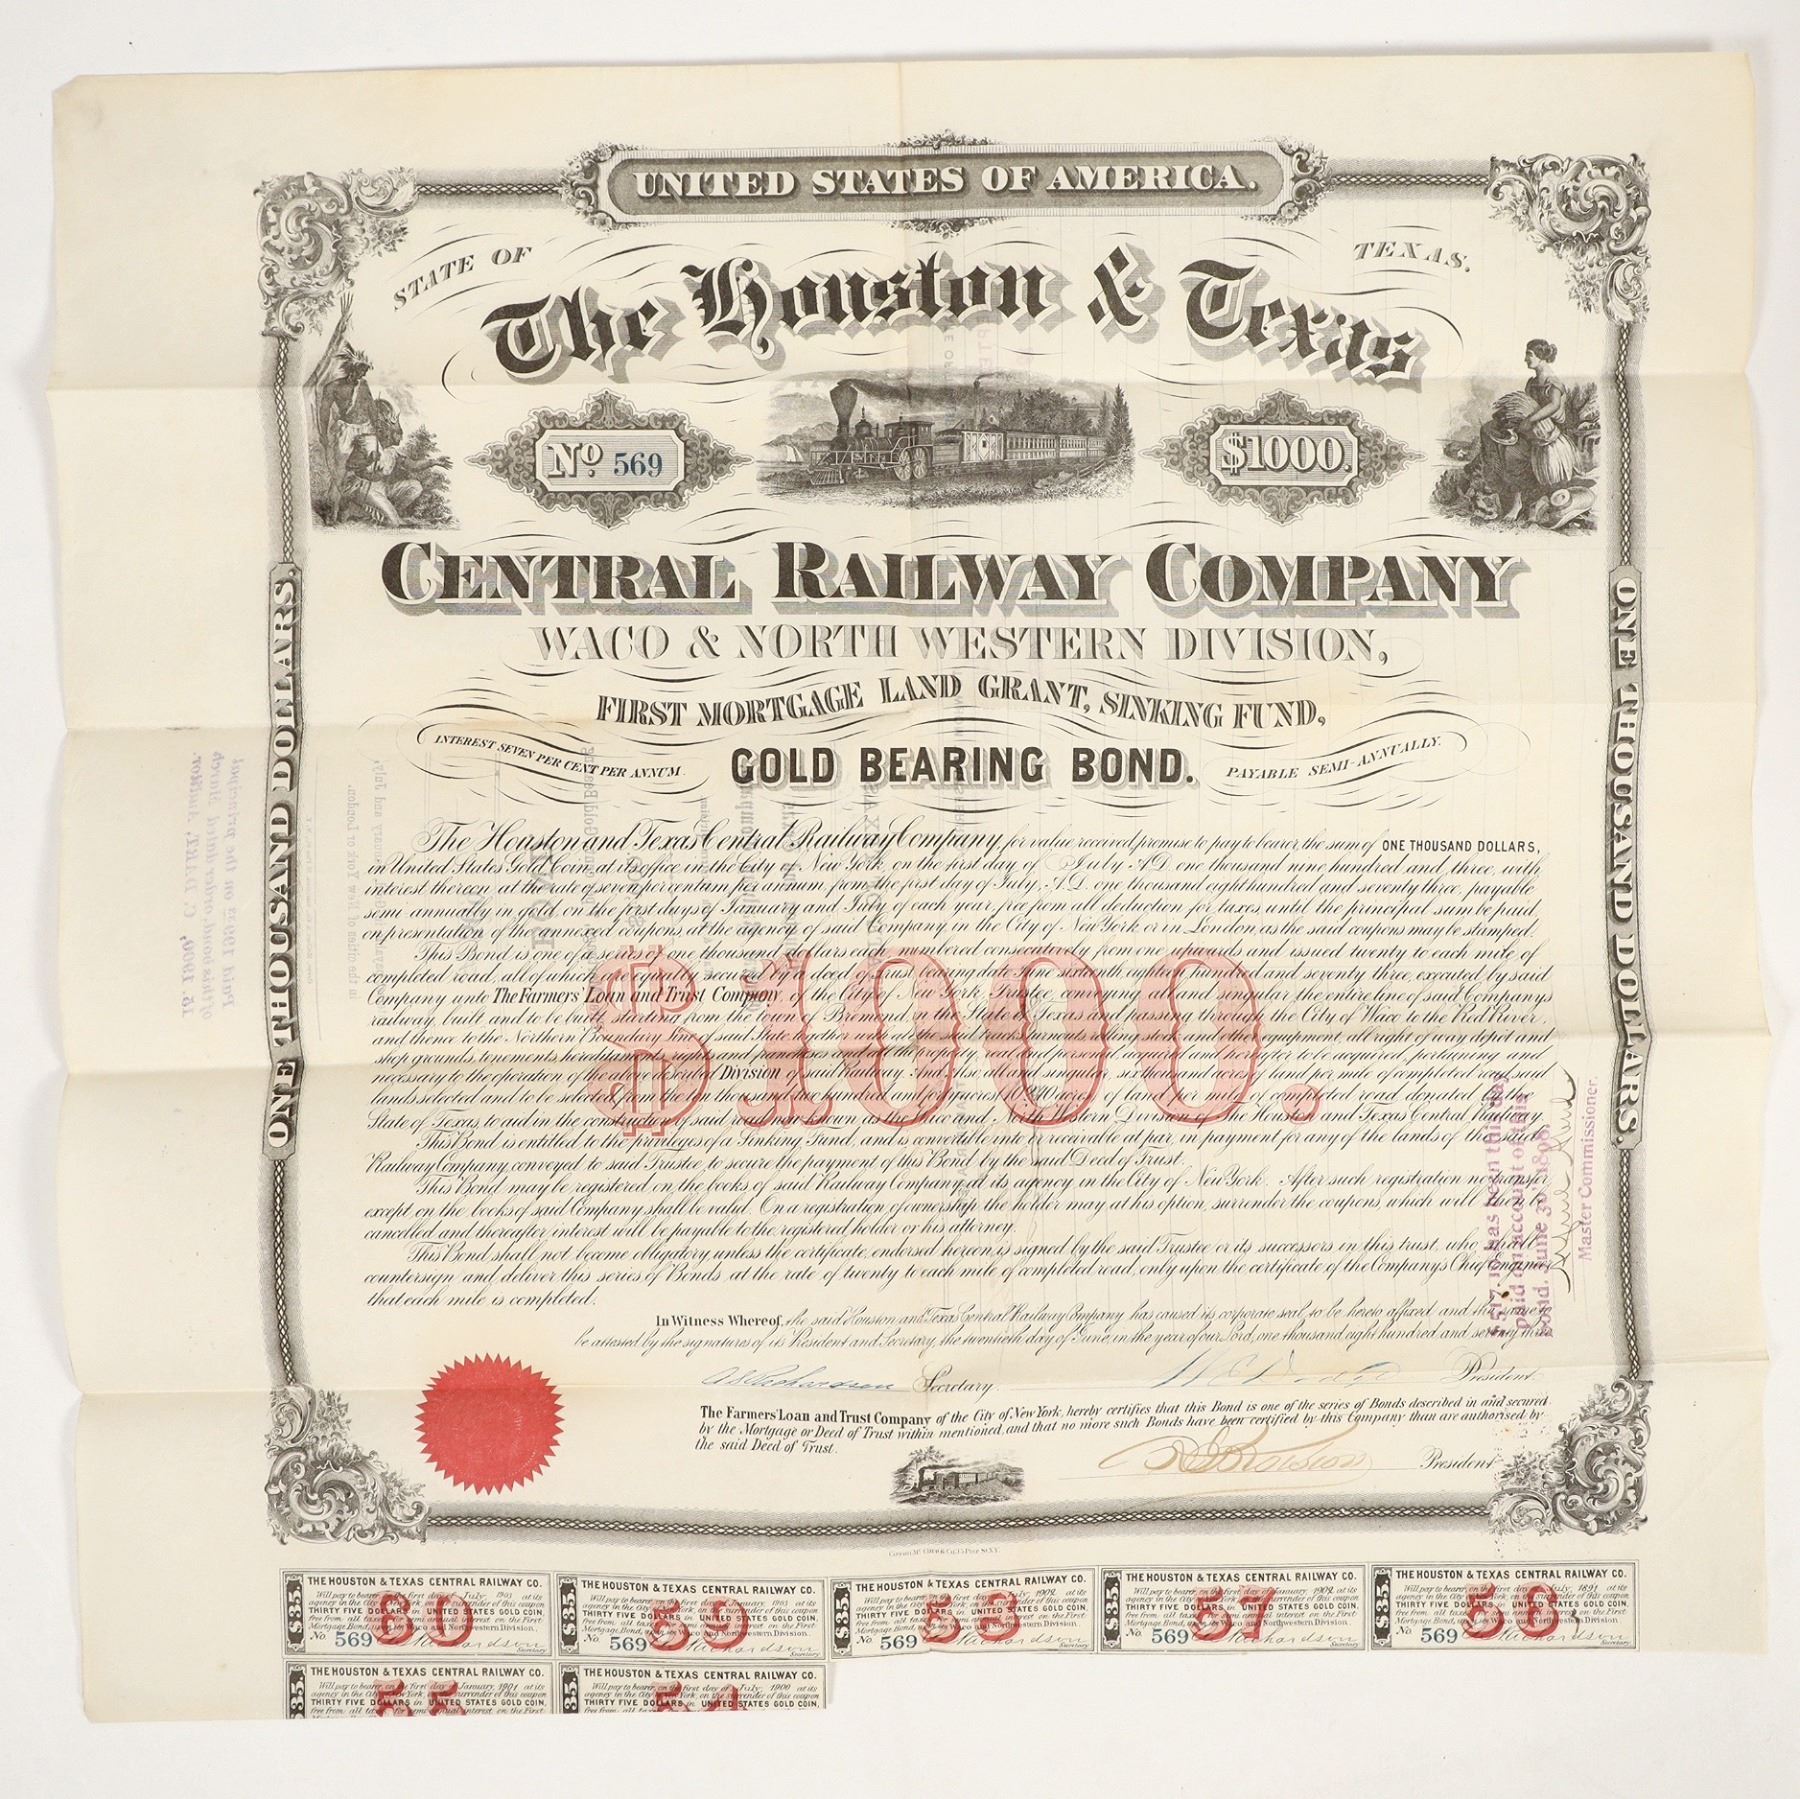 UNITED STATES OF AMERICA.
STATE OF TEXAS.
The Houston & Texas
No. 569
$1000.
CENTRAL RAILWAY COMPANY
WACO & NORTH WESTERN DIVISION,
FIRST MORTGAGE LAND GRANT, SINKING FUND,
INTEREST SEVEN PER CENT PER ANNUM.
GOLD BEARING BOND.
PAYABLE SEMI-ANNUALLY.
ONE THOUSAND DOLLARS.
ONE THOUSAND DOLLARS.
$1000.
The Houston and Texas Central Railway Company, for value received promise to pay to bearer, the sum of ONE THOUSAND DOLLARS,
in United States Gold Coin, at its office in the City of New York, on the first day of July A.D. one thousand nine hundred and three, with
interest thereon, at the rate of seven per centum per annum, from the first day of July, A.D. one thousand eight hundred and seventy three, payable
semi-annually in gold, on the first days of January and July of each year, free from all deduction for taxes, until the principal sum be paid,
on presentation of the annexed coupons, at the agency of said Company in the City of New York or in London, as the said coupons may be stamped.
This Bond is one of a series of one thousand dollars each, numbered consecutively from one upwards and issued twenty to each mile of
completed road, all of which are equally secured by a deed of trust, bearing date June sixteenth, eighteen hundred and seventy three, executed by said
Company unto The Farmers' Loan and Trust Company, of the City of New York, Trustee, conveying all and singular the entire line of said Company's
railway, built and to be built, starting from the town of Bremond, in the State of Texas and passing through the City of Waco to the Red River,
and thence to the Northern Boundary line of said State, together with all the said tracks, turnouts, rolling stock and other equipment, all right of way depot and
shop grounds, tenements, hereditaments, rights and franchises and all the property, real and personal acquired and hereafter to be acquired, pertaining and
necessary to the operation of the above described Division of said Railway. And also, all and singular, six thousand acres of land per mile of completed road, said
lands selected and to be selected, from the ten thousand two hundred and forty acres 10.240 acres of land per mile of completed road donated by the
State of Texas, to aid in the construction of said road now known as the Waco and North Western Division of The Houston and Texas Central Railway.
This Bond is entitled to the privileges of a Sinking Fund, and is convertible into or receivable at par, in payment for any of the lands of the said
Railway Company, conveyed to said Trustee, to secure the payment of this Bond by the said Deed of Trust.
This Bond may be registered on the books of said Railway Company, at its agency, in the City of New York. After such registration no transfer,
except on the books of said Company shall be valid. On a registration of ownership the holder may at his option, surrender the coupons, which will then be
cancelled and thereafter interest will be payable to the registered holder or his attorney.
This Bond shall not become obligatory unless the certificate, endorsed hereon, is signed by the said Trustee or its successors in this trust, who shall
countersign and deliver this series of Bonds at the rate of twenty to each mile of completed road, only upon the certificate of the Company's Chief Engineer
that each mile is completed.
In Witness Whereof, the said Houston and Texas Central Railway Company has caused its corporate seal, to be hereto affixed and the same to
be attested by the signatures of its President and Secretary, the twentieth day of June, in the year of our Lord, one thousand eight hundred and seventy three
A S Richardson Secretary. W E Dodge President
The Farmers' Loan and Trust Company of the City of New York, hereby certifies that this Bond is one of the series of Bonds described in and secured
by the Mortgage or Deed of Trust within mentioned, and that no more such Bonds have been certified by this Company than are authorised by
the said Deed of Trust.
President
has been this day
paid on account of this
bond. June 30, 1898.
Master Commissioner.
Paid 1993s on the principal
of this bond order dated March
15, 1900, C. DART, Auditor.
THE HOUSTON & TEXAS CENTRAL RAILWAY CO.
Will pay to bearer, on the first day of July, 1903 at its
THIRTY FIVE DOLLARS in UNITED STATES GOLD COIN,
No. 569 60 Richardson Secretary
$35.
THE HOUSTON & TEXAS CENTRAL RAILWAY CO.
Will pay to bearer, on the first day of January, 1903 at its
THIRTY FIVE DOLLARS in UNITED STATES GOLD COIN,
No. 569 59 Richardson Secretary
$35.
THE HOUSTON & TEXAS CENTRAL RAILWAY CO.
Will pay to bearer, on the first day of July, 1902 at its
THIRTY FIVE DOLLARS in UNITED STATES GOLD COIN,
No. 569 58 Richardson Secretary
$35.
THE HOUSTON & TEXAS CENTRAL RAILWAY CO.
Will pay to bearer, on the first day of January, 1902 at its
THIRTY FIVE DOLLARS in UNITED STATES GOLD COIN,
No. 569 57 Richardson Secretary
$35.
THE HOUSTON & TEXAS CENTRAL RAILWAY CO.
Will pay to bearer, on the first day of July, 1891 at its
THIRTY FIVE DOLLARS in UNITED STATES GOLD COIN,
No. 569 56 Richardson Secretary
$35.
THE HOUSTON & TEXAS CENTRAL RAILWAY CO.
Will pay to bearer, on the first day of January, 1901 at its
agency in the City of New York, on the surrender of this coupon
THIRTY FIVE DOLLARS in UNITED STATES GOLD COIN,
55
$35.
THE HOUSTON & TEXAS CENTRAL RAILWAY CO.
Will pay to bearer, on the first day of July, 1900 at its
agency in the City of New York, on the surrender of this coupon
THIRTY FIVE DOLLARS in UNITED STATES GOLD COIN,
54